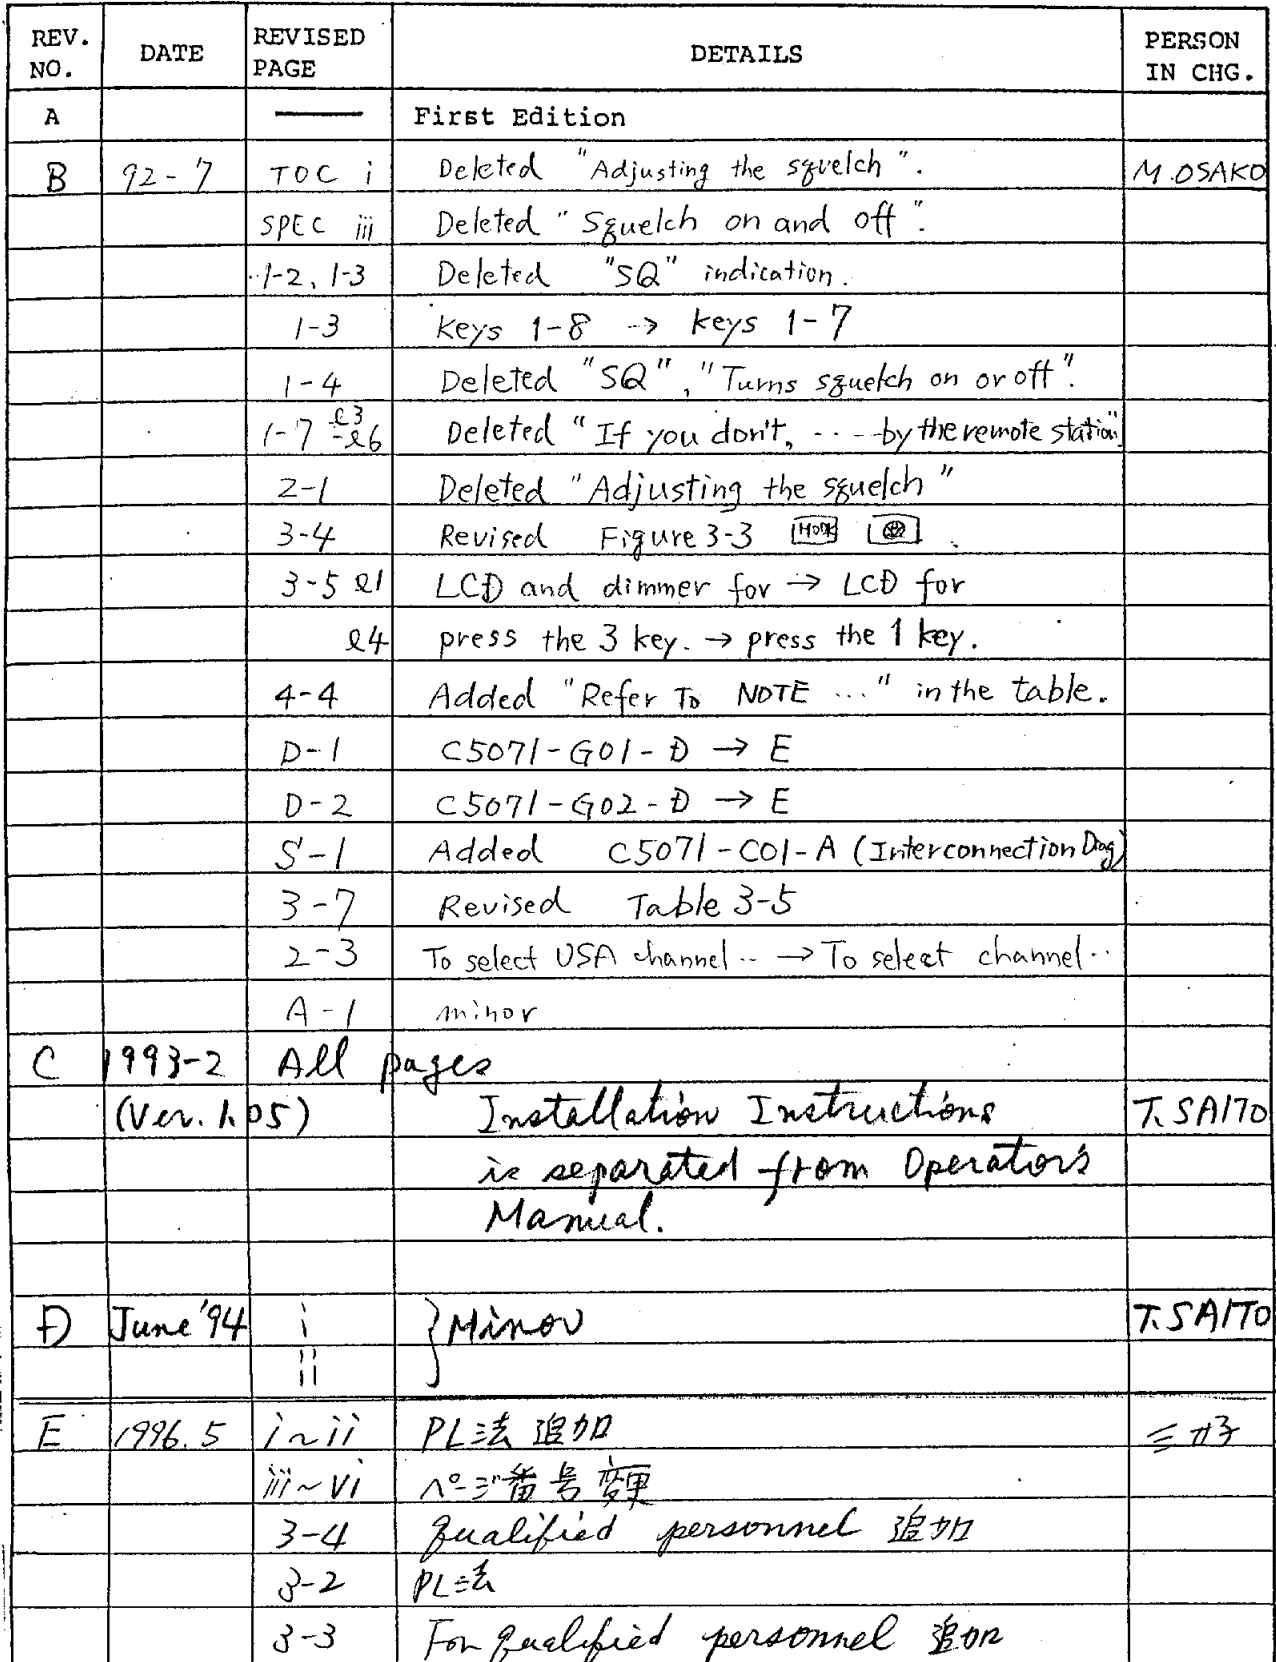 REV. NO. DATE REVISED PAGE DETAILS PERSON IN CHG.
A —— First Edition
B 92-7 TOC i Deleted "Adjusting the squelch". M.OSAKO
SPEC iii Deleted "Squelch on and off".
1-2, 1-3 Deleted "SQ" indication.
1-3 keys 1-8 → keys 1-7
1-4 Deleted "SQ", "Turns squelch on or off".
1-7 ℓ3-ℓ6 Deleted "If you don't, ---- by the remote station"
2-1 Deleted "Adjusting the squelch"
3-4 Revised Figure 3-3 HOOK .
3-5 ℓ1 LCD and dimmer for → LCD for
ℓ4 press the 3 key. → press the 1 key.
4-4 Added "Refer To NOTE ..." in the table.
D-1 C5071-G01-D → E
D-2 C5071-G02-D → E
S-1 Added C5071-C01-A (Interconnection Diag)
3-7 Revised Table 3-5
2-3 To select USA channel.. → To select channel..
A-1 minor
C 1993-2 All pages
(Ver. 1.05) Installation Instructions T.SAITO
is separated from Operator's
Manual.
D June '94 i } Minor T.SAITO
ii
E 1996.5 i~ii PL法 追加 三好
iii~vi ページ番号変更
3-4 qualified personnel 追加
3-2 PL法
3-3 For qualified personnel 追加